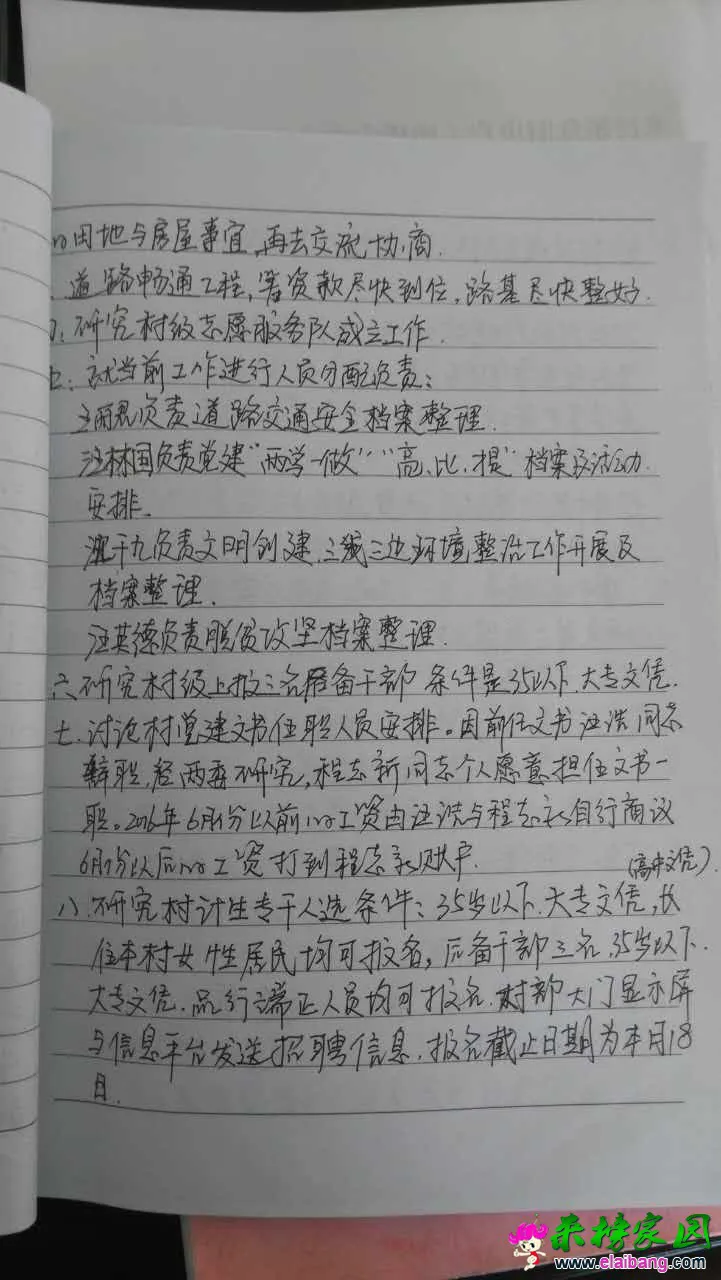 用地与房屋事宜,再去交流协商.
道路畅通工程,筹资款尽快到位,路基尽快整好.
研究村级志愿服务队成立工作.
五:就当前工作进行人员分配负责:
负责道路交通安全档案整理.
汪林国负责党建“两学一做”“高、比、提”档案及活动
安排.
负责文明创建.三线三边环境整治工作开展及
档案整理.
汪英德负责脱贫攻坚档案整理.
六.研究村级上报三名后备干部 条件是35以下.大专文凭.
七.讨论村党建文书任职人员安排。因前任文书汪浩同志
辞职,经两委研究,程志新同志个人愿意担任文书一
职。2016年6月份以前工资由汪浩与程志新自行商议
6月份以后工资打到程志新账户.
(高中文凭)
八.研究村计生专干人选条件:35岁以下.大专文凭,长
住本村女性居民均可报名,后备干部三名.35岁以下.
大专文凭.品行端正人员均可报名.村部大门显示屏
与信息平台发送招聘信息.报名截止日期为本月18
日.
来榜家园
www.elaibang.com